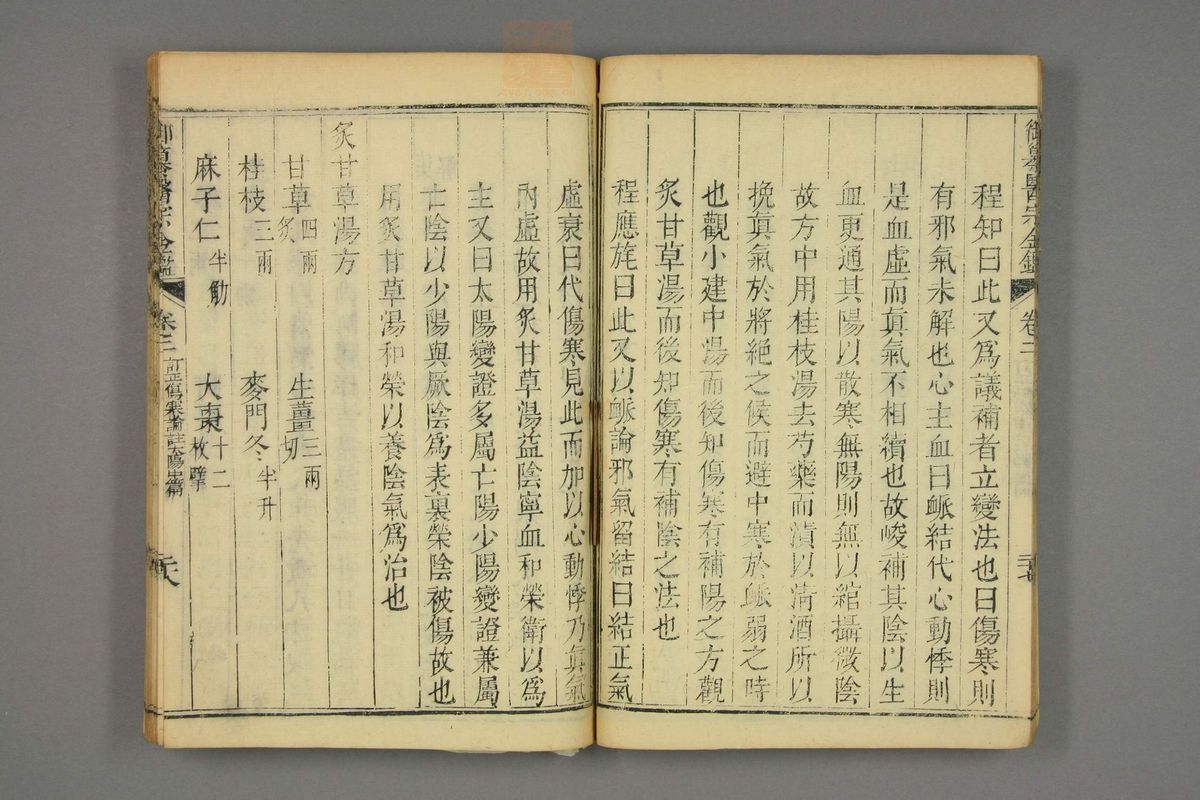 程知曰此又爲議補者立變法也曰傷寒則
有邪氣未解也心主血曰脈結代心動悸則
是血虛而眞氣不相續也故峻補其陰以生
血更通其陽以散寒無陽則無以綰攝微陰
故方中用桂枝湯去芍藥而漬以清酒所以
挽眞氣於將絕之候而避中寒於脈弱之時
也觀小建中湯而後知傷寒有補陽之方觀
炙甘草湯而後知傷寒有補陰之法也
程應旄曰此又以脈論邪氣留結曰結正氣
虛衰曰代傷寒見此而加以心動悸乃眞氣
內虛故用炙甘草湯益陰寧血和榮衛以爲
主又曰太陽變證多屬亡陽少陽變證兼屬
亡陰以少陽與厥陰爲表裏榮陰被傷故也
用炙甘草湯和榮以養陰氣爲治也
炙甘草湯方
甘草四兩炙 生薑三兩切
桂枝三兩 麥門冬半升
麻子仁半觔 大棗十二枚擘
御纂醫宗金鑑 卷二
御纂醫宗金鑑 卷二 訂正傷寒論註太陽中篇 六